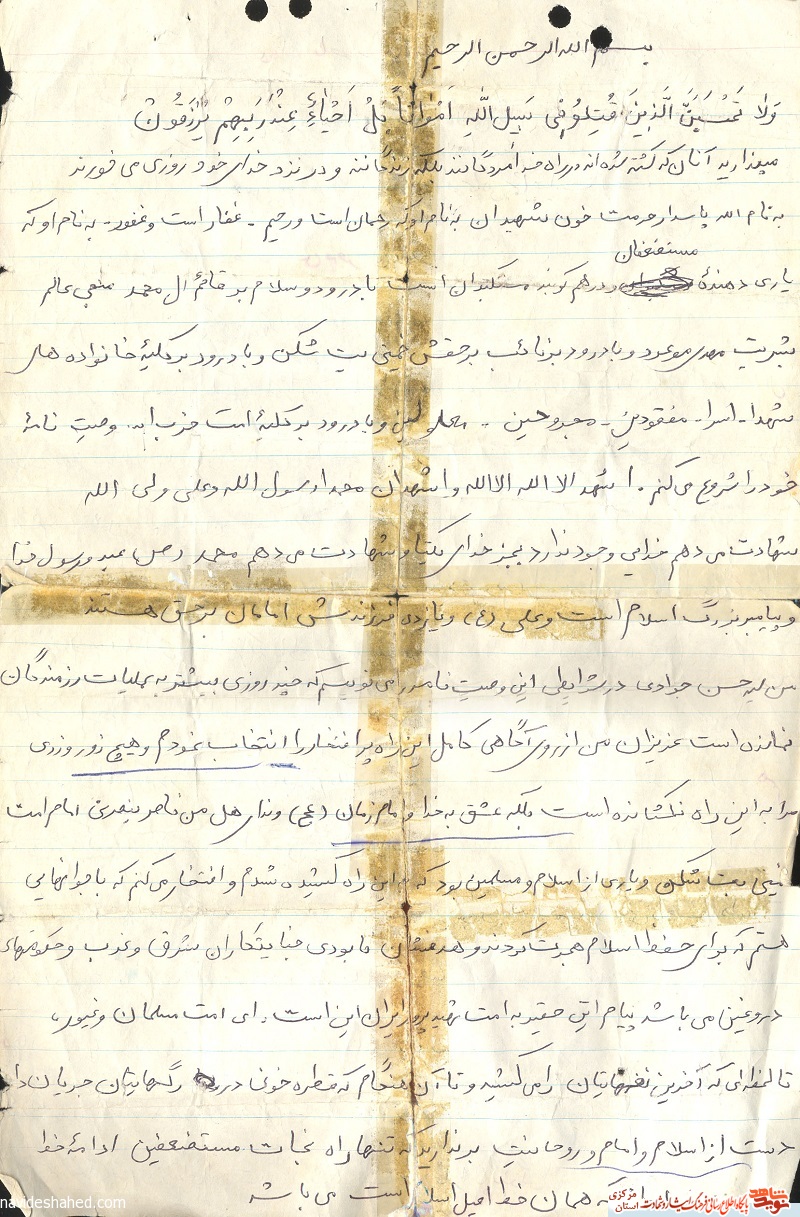 بسم الله الرحمن الرحیم
وَلا تَحْسَبَنَّ الَّذینَ قُتِلُو فی سَبیلِ اللّهِ اَمْواتاً بَلْ اَحْیاءٌ عِنْدَ رَبِهِمْ یُرْزَقُونْ
مپندارید آنان که کشته شده اند در راه خدا مردگانند بلکه زندگانند و در نزد خدای خود روزی می خورند
به نام الله پاسدار حرمت خون شهیدان به نام او که رحمان است و رحیم - غفار است و غفور - به نام او که
مستضعفان
یاری دهندهٔ و در هم کوبنده مستکبران است با درود و سلام بر قائم آل محمد منجی عالم
بشریت مهدی موعود و با درود بر نائب بر حقش خمینی بت شکن و با درود بر کلیهٔ خانواده های
شهدا - اسرا - مفقودین - مجروحین - معلولین و با درود بر کلیهٔ امت حزب الله وصیت نامهٔ
خود را شروع می کنم . اشهد الا الله الا الله و اشهد ان محمدا رسول الله و علی ولی الله
شهادت می دهم خدایی وجود ندارد بجز خدای یکتا و شهادت می دهم محمد (ص) عبد و رسول خدا
و پیامبر بزرگ اسلام است و علی (ع) و یازده فرزندش امامان بر حق هستند
من حسن جوادی در شرایطی این وصیت نامه را می نویسم که چند روزی بیشتر به عملیات رزمندگان
نمانده است عزیزان من از روی آگاهی کامل این راه پر افتخار را انتخاب نمودم و هیچ زور و زری
مرا به این راه نکشانده است بلکه عشق به خدا و امام زمان (عج) و ندای هل من ناصر ینصرنی امام امت
خمینی بت شکن و یاری از اسلام و مسلمین بود که به این راه کشیده شدم و افتخار می کنم که با جوانهایی
هستم که برای حفظ اسلام هجرت کردند و هدفشان نابودی جنایتکاران شرق و غرب و حکومتهای
دروغین می باشد پیام این حقیر به امت شهید پرور ایران این است ای امت مسلمان و غیور،
تا لحظه ای که آخرین نفسهایتان را می کشید و تا آن هنگام که قطره خونی در رگهایتان جریان دارد
دست از اسلام و امام و روحانیت بر ندارید که تنها راه نجات مستضعفین ادامهٔ خط
که همان خط اصیل اسلام است می باشد
navideshahed.com
نوید شاهد
پایگاه اطلاع رسانی فرهنگ ایثار و شهادت
استان مرکزی